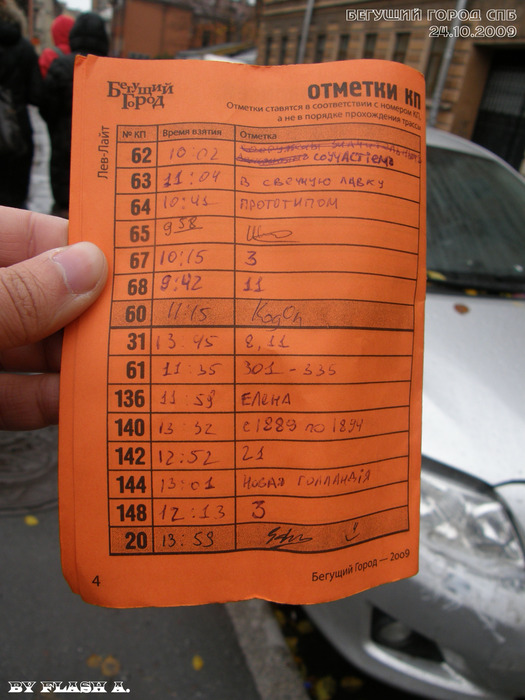 БЕГУЩИЙ ГОРОД СПБ
24.10.2009
Бегущий Город
ОТМЕТКИ КП
Отметки ставятся в соответствии с номером КП,
а не в порядке прохождения трассы
Лев-Лайт
№ КП Время взятия Отметка
62 10:02 СОУЧАСТІЕМЪ
63 11:04 В СВЕЖУЮ ЛАВКУ
64 10:41 ПРОТОТИПОМ
65 9 58
67 10:15 3
68 9:42 11
60 11:15 КодОп
31 13:45 8,11
61 11:35 301 - 335
136 11:59 ЕЛЕНА
140 13:32 с 1889 по 1894
142 12:52 21
144 13:01 НОВАЯ ГОЛЛАНДІЯ
148 12:13 3
20 13:59
4 Бегущий Город — 2009
BY FLASH A.